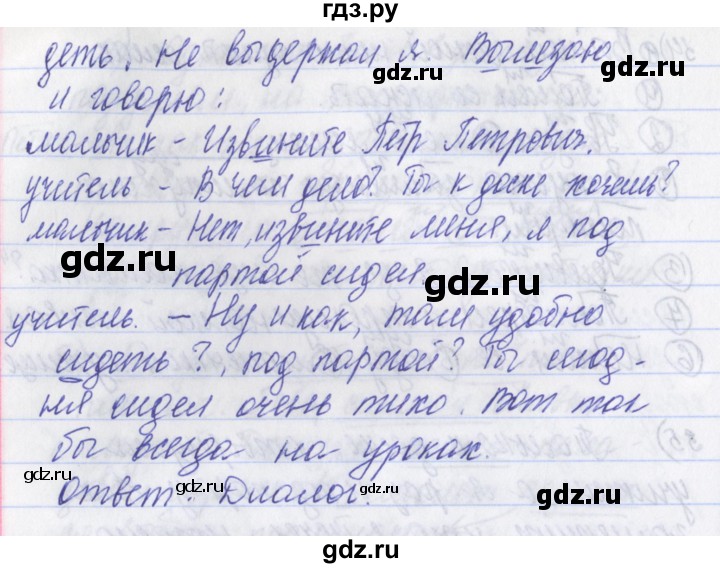 гдз.ру
деть. Не выдержал я. Вылезаю
gdz.ru gdz.ru
и говорю:
мальчик - Извините Пётр Петрович.
учитель - В чём дело? Ты к доске хочешь?
мальчик - Нет, извините меня, я под
gdz.ru gdz.ru
партой сидел.
учитель. - Ну и как, там удобно
сидеть?, под партой? Ты сегод-
ня сидел очень тихо. Вот так
бы всегда на уроках.
Ответ: Диалог.
gdz.ru gdz.ru gdz.ru gdz.ru
gdz.ru